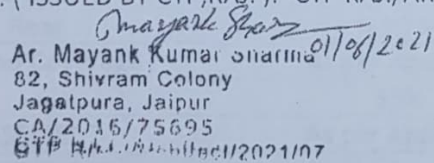 Mayank Shar 01/06/2021
Ar. Mayank Kumar Sharma
82, Shivram Colony
Jagatpura, Jaipur
CA/2016/75695
/2021/07